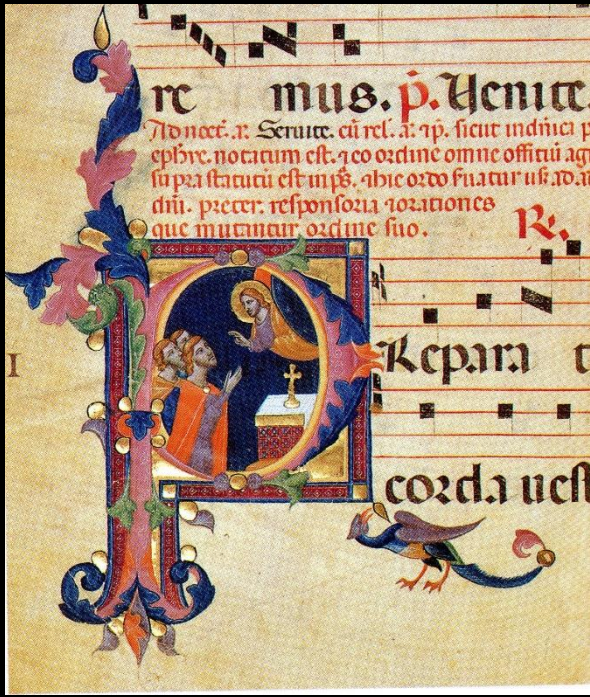 re mus. p. Venite.
Ad noct. a. Seruite. cū rel. a. ⁊ p̄. sicut in dnica p
ephye. notatum est. ⁊ eo ordine omne offitiū agi
supra statutū est in ps. ⁊ hic ordo
dni. preter. responsoria ⁊ orationes
que mutantur ordine suo. R.
I
P Repara t
corda uest